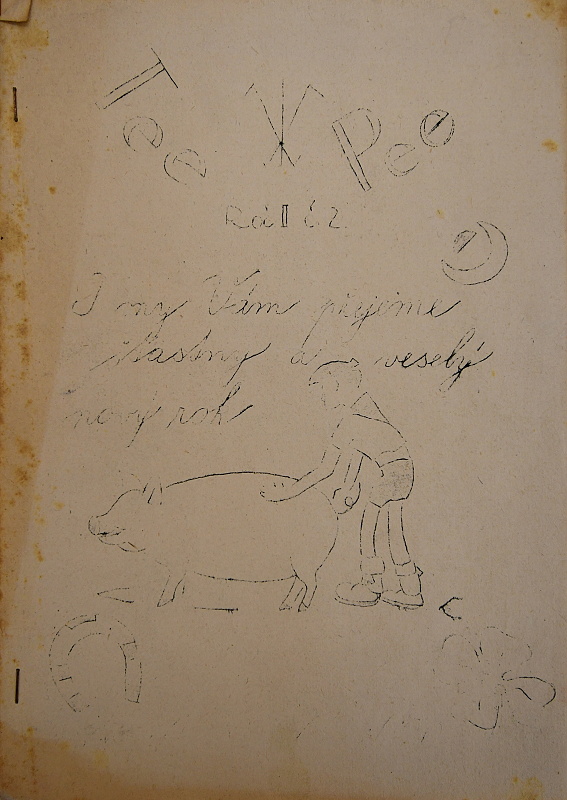 Tee Pee
Roč. II č. 2
I my Vám přejeme
šťastný a veselý
nový rok